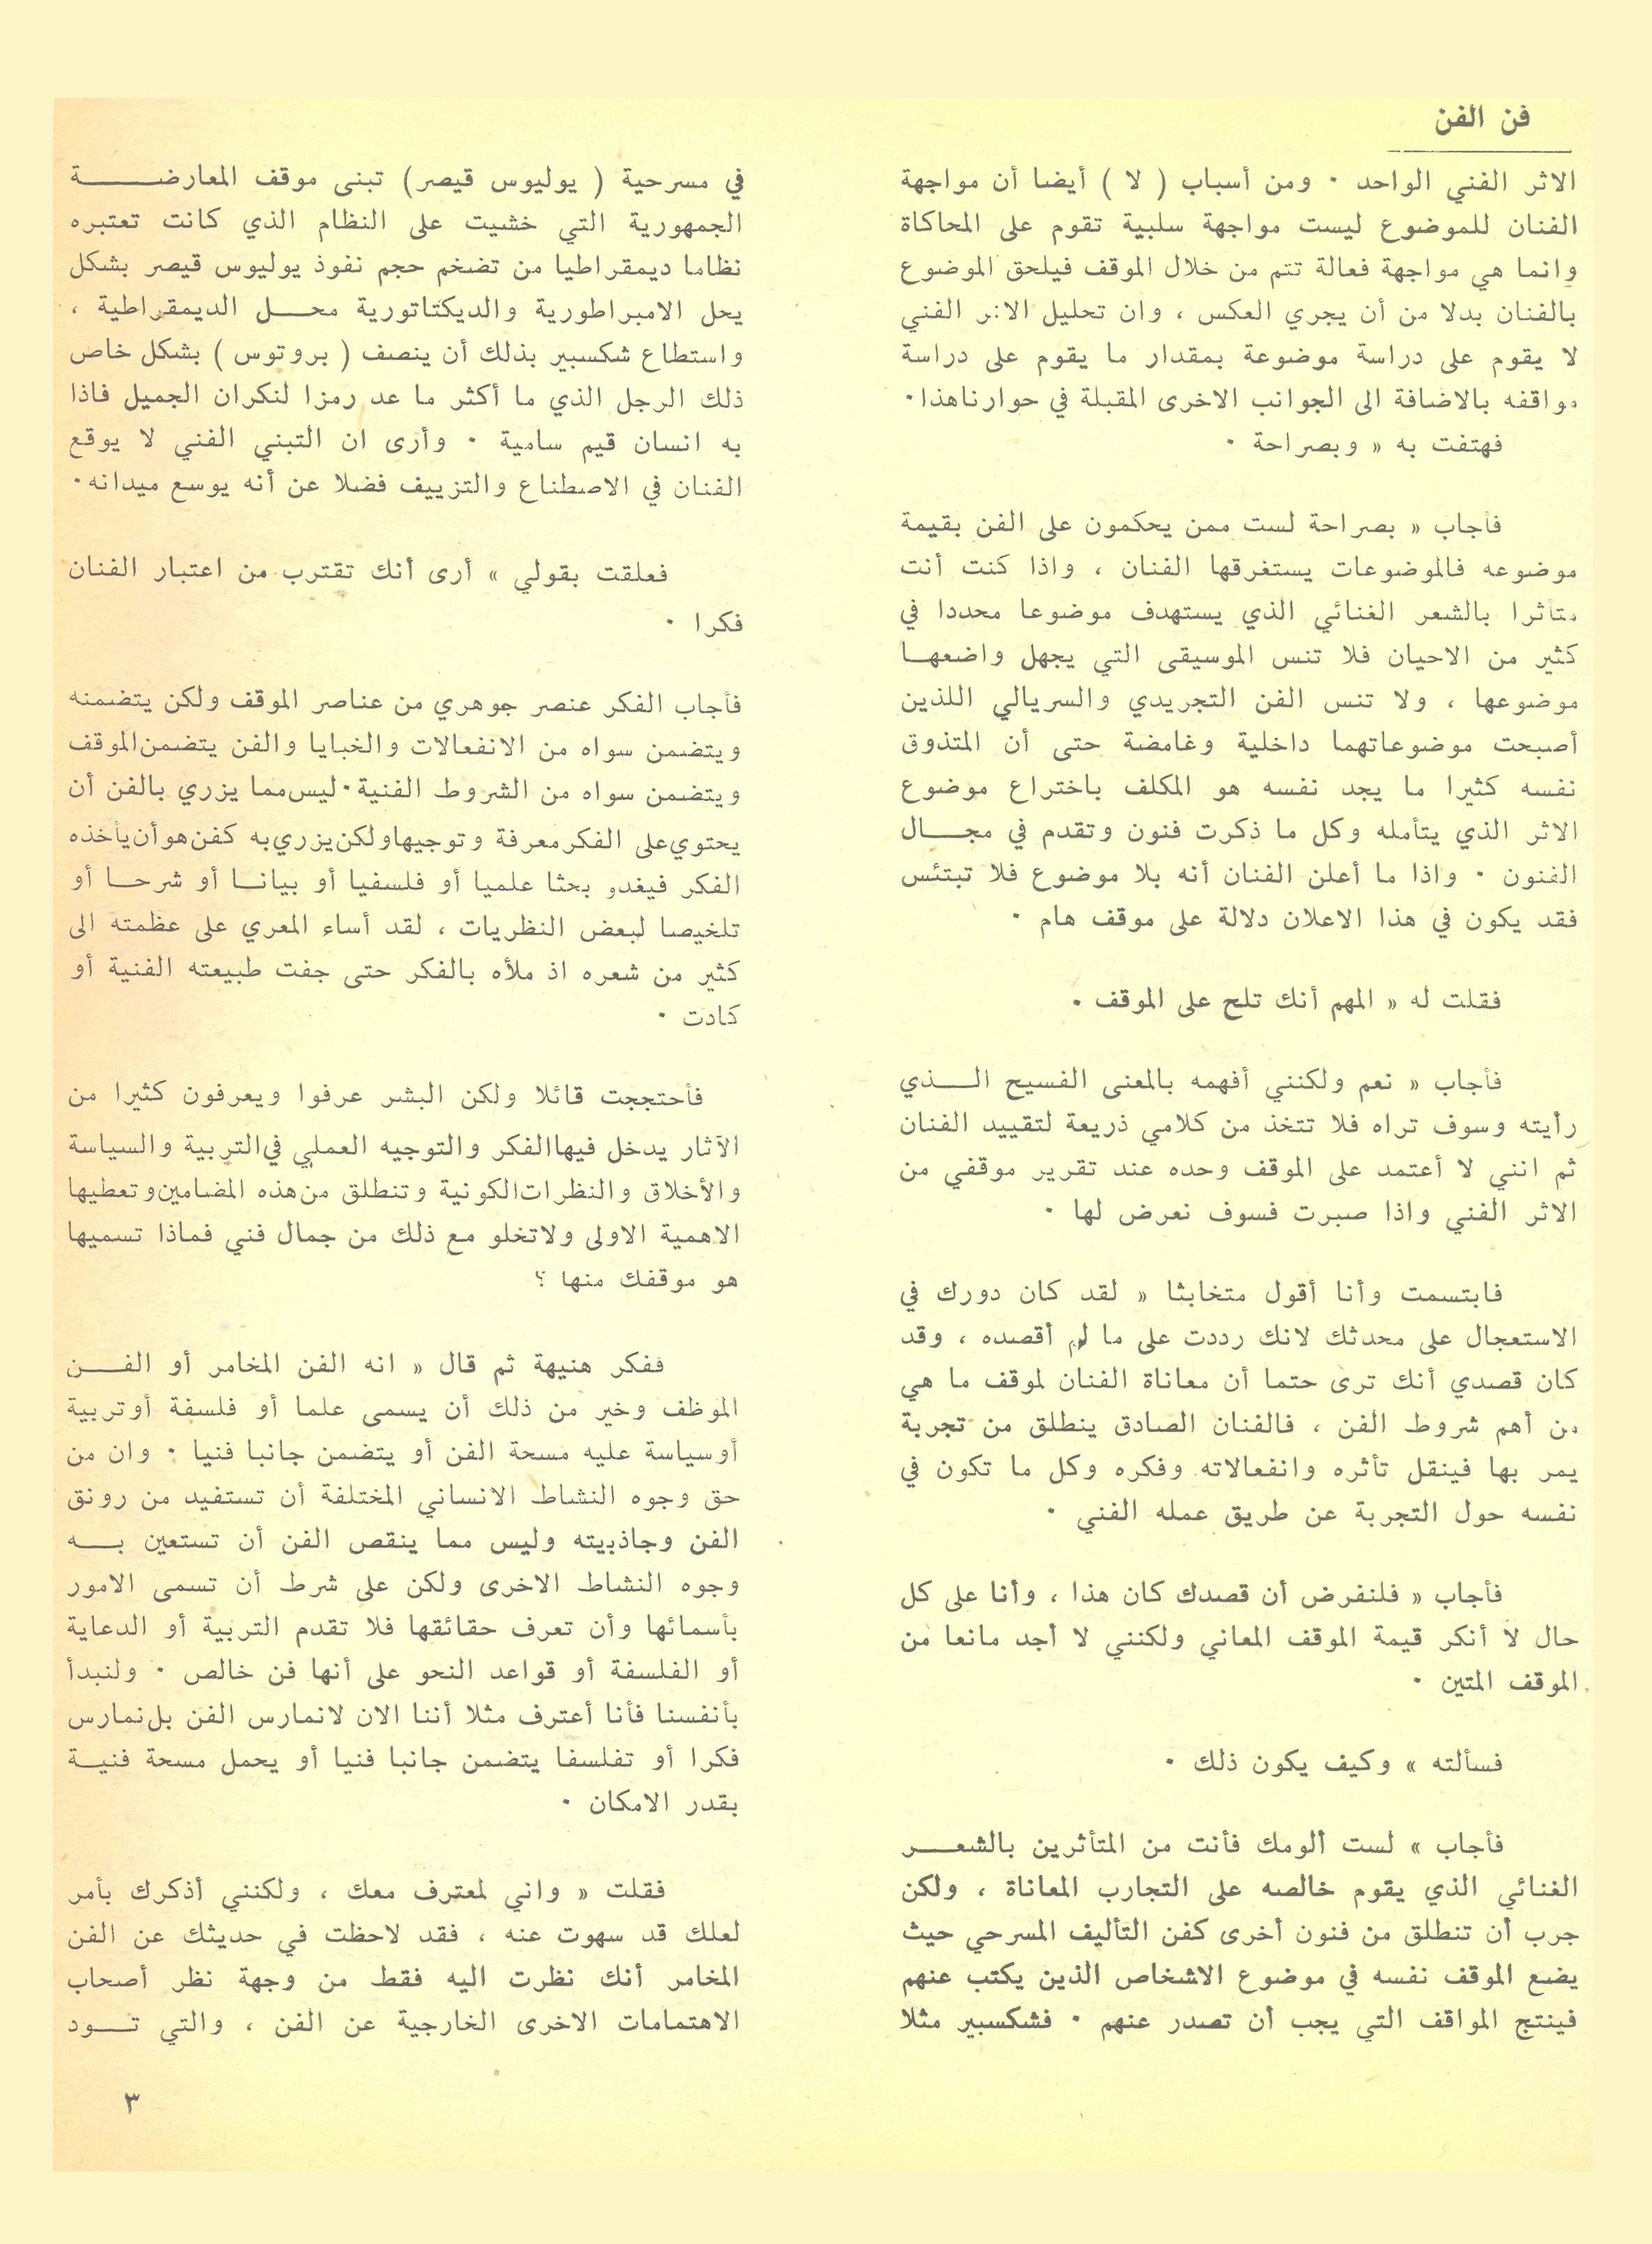 فن الفن
الاثر الفني الواحد ٠ ومن أسباب ( لا ) أيضا أن مواجهة
الفنان للموضوع ليست مواجهة سلبية تقوم على المحاكاة
وانما هي مواجهة فعالة تتم من خلال الموقف فيلحق الموضوع
بالفنان بدلا من أن يجري العكس ، وان تحليل الاثر الفني
لا يقوم على دراسة موضوعة بمقدار ما يقوم على دراسة
مواقفه بالاضافة الى الجوانب الاخرى المقبلة في حوارناهذا٠
فهتفت به « وبصراحة ٠
فأجاب « بصراحة لست ممن يحكمون على الفن بقيمة
موضوعه فالموضوعات يستغرقها الفنان ، واذا كنت أنت
متأثرا بالشعر الغنائي الذي يستهدف موضوعا محددا في
كثير من الاحيان فلا تنس الموسيقى التي يجهل واضعهـا
موضوعها ، ولا تنس الفن التجريدي والسريالي اللذين
أصبحت موضوعاتهما داخلية وغامضة حتى أن المتذوق
نفسه كثيرا ما يجد نفسه هو المكلف باختراع موضوع
الاثر الذي يتأمله وكل ما ذكرت فنون وتقدم في مجـــال
الفنون ٠ واذا ما أعلن الفنان أنه بلا موضوع فلا تبتئس
فقد يكون في هذا الاعلان دلالة على موقف هام ٠
فقلت له « المهم أنك تلح على الموقف ٠
فأجاب « نعم ولكنني أفهمه بالمعنى الفسيح الـــذي
رأيته وسوف تراه فلا تتخذ من كلامي ذريعة لتقييد الفنان
ثم انني لا أعتمد على الموقف وحده عند تقرير موقفي من
الاثر الفني واذا صبرت فسوف نعرض لها ٠
فابتسمت وأنا أقول متخابثا « لقد كان دورك في
الاستعجال على محدثك لانك رددت على ما لم أقصده ، وقد
كان قصدي أنك ترى حتما أن معاناة الفنان لموقف ما هي
من أهم شروط الفن ، فالفنان الصادق ينطلق من تجربة
يمر بها فينقل تأثره وانفعالاته وفكره وكل ما تكون في
نفسه حول التجربة عن طريق عمله الفني ٠
فأجاب « فلنفرض أن قصدك كان هذا ، وأنا على كل
حال لا أنكر قيمة الموقف المعاني ولكنني لا أجد مانعا من
الموقف المتين ٠
فسألته » وكيف يكون ذلك ٠
فأجاب » لست ألومك فأنت من المتأثرين بالشعـــر
الغنائي الذي يقوم خالصه على التجارب المعاناة ، ولكن
جرب أن تنطلق من فنون أخرى كفن التأليف المسرحي حيث
يضع الموقف نفسه في موضوع الاشخاص الذين يكتب عنهم
فينتج المواقف التي يجب أن تصدر عنهم ٠ فشكسبير مثلا
في مسرحية ( يوليوس قيصر) تبنى موقف المعارضـــــة
الجمهورية التي خشيت على النظام الذي كانت تعتبره
نظاما ديمقراطيا من تضخم حجم نفوذ يوليوس قيصر بشكل
يحل الامبراطورية والديكتاتورية محـــل الديمقراطية ،
واستطاع شكسبير بذلك أن ينصف ( بروتوس ) بشكل خاص
ذلك الرجل الذي ما أكثر ما عد رمزا لنكران الجميل فاذا
به انسان قيم سامية ٠ وأرى ان التبني الفني لا يوقع
الفنان في الاصطناع والتزييف فضلا عن أنه يوسع ميدانه٠
فعلقت بقولي » أرى أنك تقترب من اعتبار الفنان
فكرا ٠
فأجاب الفكر عنصر جوهري من عناصر الموقف ولكن يتضمنه
ويتضمن سواه من الانفعالات والخبايا والفن يتضمن الموقف
ويتضمن سواه من الشروط الفنية٠ليس مما يزري بالفن أن
يحتوي على الفكر معرفة وتوجيها ولكن يزري به كفن هو أن يأخذه
الفكر فيغدو بحثا علميا أو فلسفيا أو بيانـا أو شرحـا أو
تلخيصا لبعض النظريات ، لقد أساء المعري على عظمته الى
كثير من شعره اذ ملأه بالفكر حتى جفت طبيعته الفنية أو
كادت ٠
فأحتججت قائلا ولكن البشر عرفوا ويعرفون كثيرا من
الآثار يدخل فيها الفكر والتوجيه العملي في التربية والسياسة
والأخلاق والنظرات الكونية وتنطلق من هذه المضامين وتعطيها
الاهمية الاولى ولاتخلو مع ذلك من جمال فني فماذا تسميها
هو موقفك منها ؟
ففكر هنيهة ثم قال « انه الفن المخامر أو الفــن
الموظف وخير من ذلك أن يسمى علما أو فلسفة أوتربية
أوسياسة عليه مسحة الفن أو يتضمن جانبا فنيا ٠ وان من
حق وجوه النشاط الانساني المختلفة أن تستفيد من رونق
الفن وجاذبيته وليس مما ينقص الفن أن تستعين بـــه
وجوه النشاط الاخرى ولكن على شرط أن تسمى الامور
بأسمائها وأن تعرف حقائقها فلا تقدم التربية أو الدعاية
أو الفلسفة أو قواعد النحو على أنها فن خالص ٠ ولنبدأ
بأنفسنا فأنا أعترف مثلا أننا الان لانمارس الفن بل نمارس
فكرا أو تفلسفا يتضمن جانبا فنيا أو يحمل مسحة فنيــة
بقدر الامكان ٠
فقلت « واني لمعترف معك ، ولكنني أذكرك بأمر
لعلك قد سهوت عنه ، فقد لاحظت في حديثك عن الفن
المخامر أنك نظرت اليه فقط من وجهة نظر أصحاب
الاهتمامات الاخرى الخارجية عن الفن ، والتي تـــود
٣